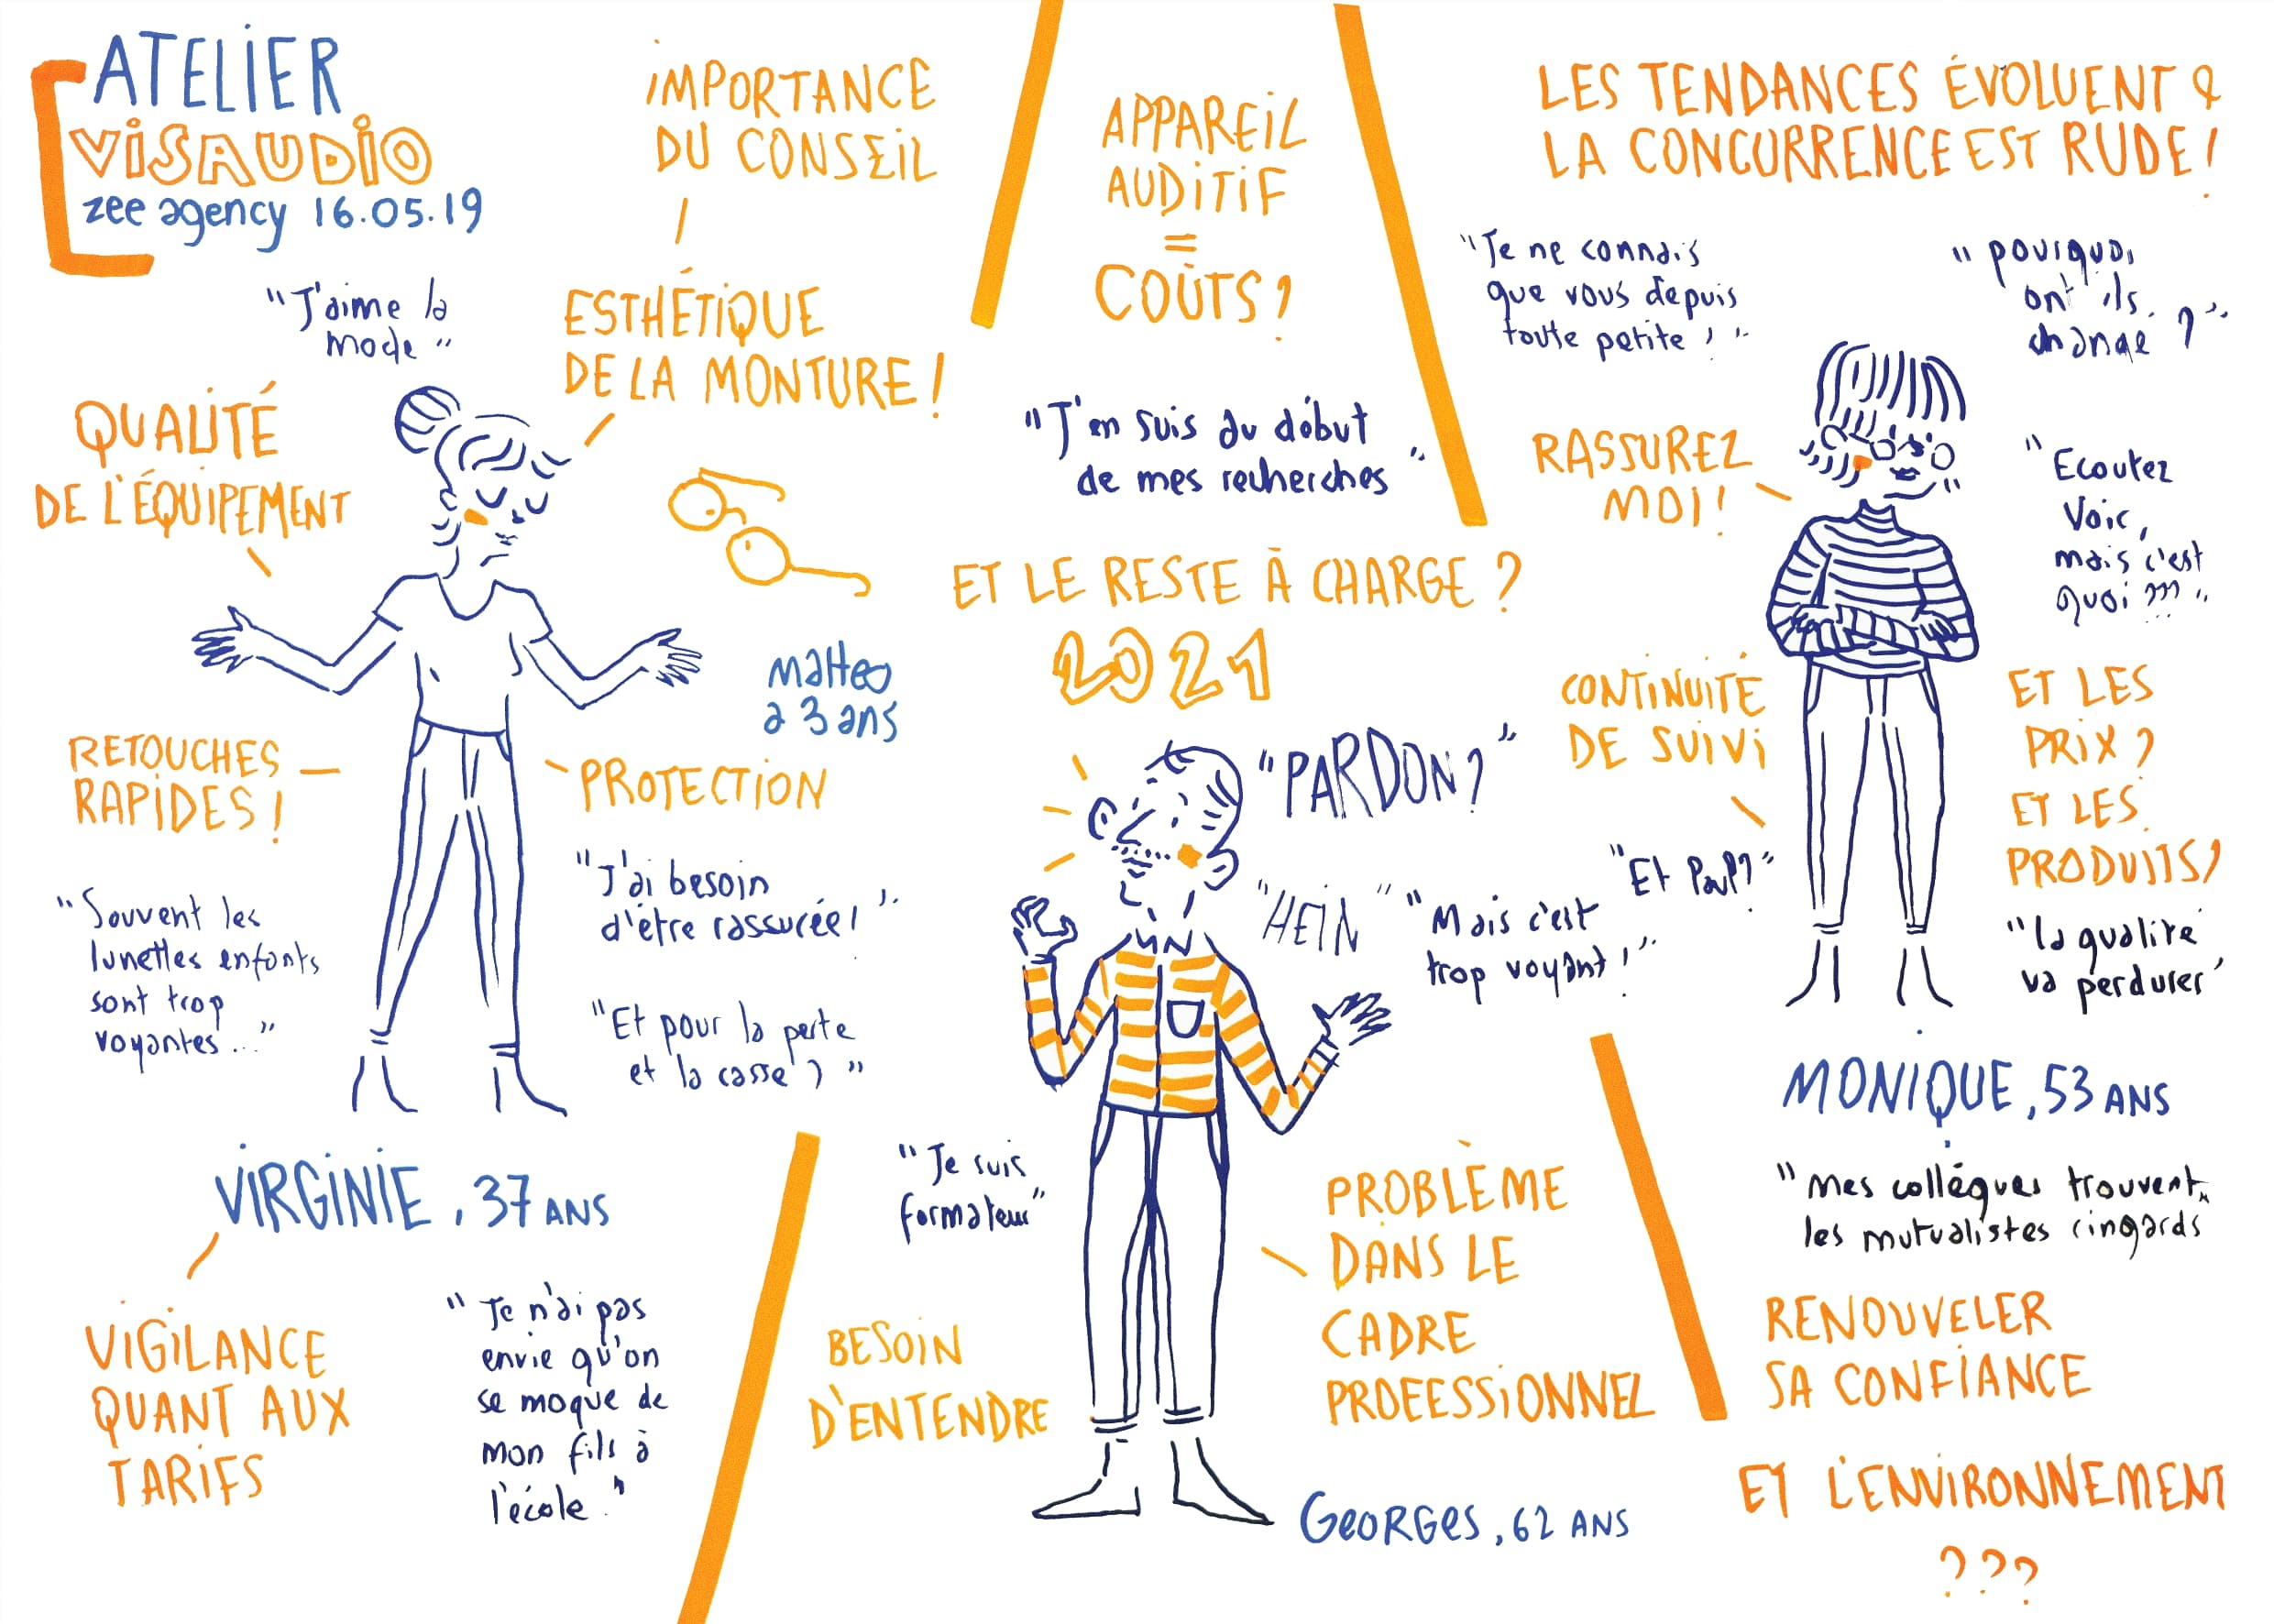 ATELIER
VISAUDIO
zee agency 16.05.19
"J'aime la
mode"
IMPORTANCE
DU CONSEIL
ESTHÉTIQUE
DE LA MONTURE !
QUALITÉ
DE L'ÉQUIPEMENT
RETOUCHES
RAPIDES !
Matteo
a 3 ans
PROTECTION
"J'ai besoin
d'être rassurée ! "
"Souvent les
lunettes enfants
sont trop
voyantes ... "
"Et pour la perte
et la casse ? "
VIRGINIE, 37 ANS
VIGILANCE
QUANT AUX
TARIFS
"Je n'ai pas
envie qu'on
se moque de
mon fils à
l'école."
APPAREIL
AUDITIF
=
COÛTS ?
"J'en suis au début
de mes recherches "
ET LE RESTE À CHARGE ?
2021
"PARDON ? "
"HEIN "
"Mais c'est
trop voyant ! "
"Je suis
formateur"
BESOIN
D'ENTENDRE
PROBLÈME
DANS LE
CADRE
PROFESSIONNEL
GEORGES, 62 ANS
LES TENDANCES ÉVOLUENT &
LA CONCURRENCE EST RUDE !
"Je ne connais
que vous depuis
toute petite ! "
"pourquoi
ont ils
changé ? "
RASSUREZ
MOI !
"Ecoutez
Voir,
mais c'est
quoi ??? "
CONTINUITÉ
DE SUIVI
"Et Paul ? "
ET LES
PRIX ?
ET LES
PRODUITS ?
"la qualité
va perdurer"
MONIQUE, 53 ANS
"Mes collègues trouvent
les mutualistes ringards"
RENOUVELER
SA CONFIANCE
ET L'ENVIRONNEMENT
???